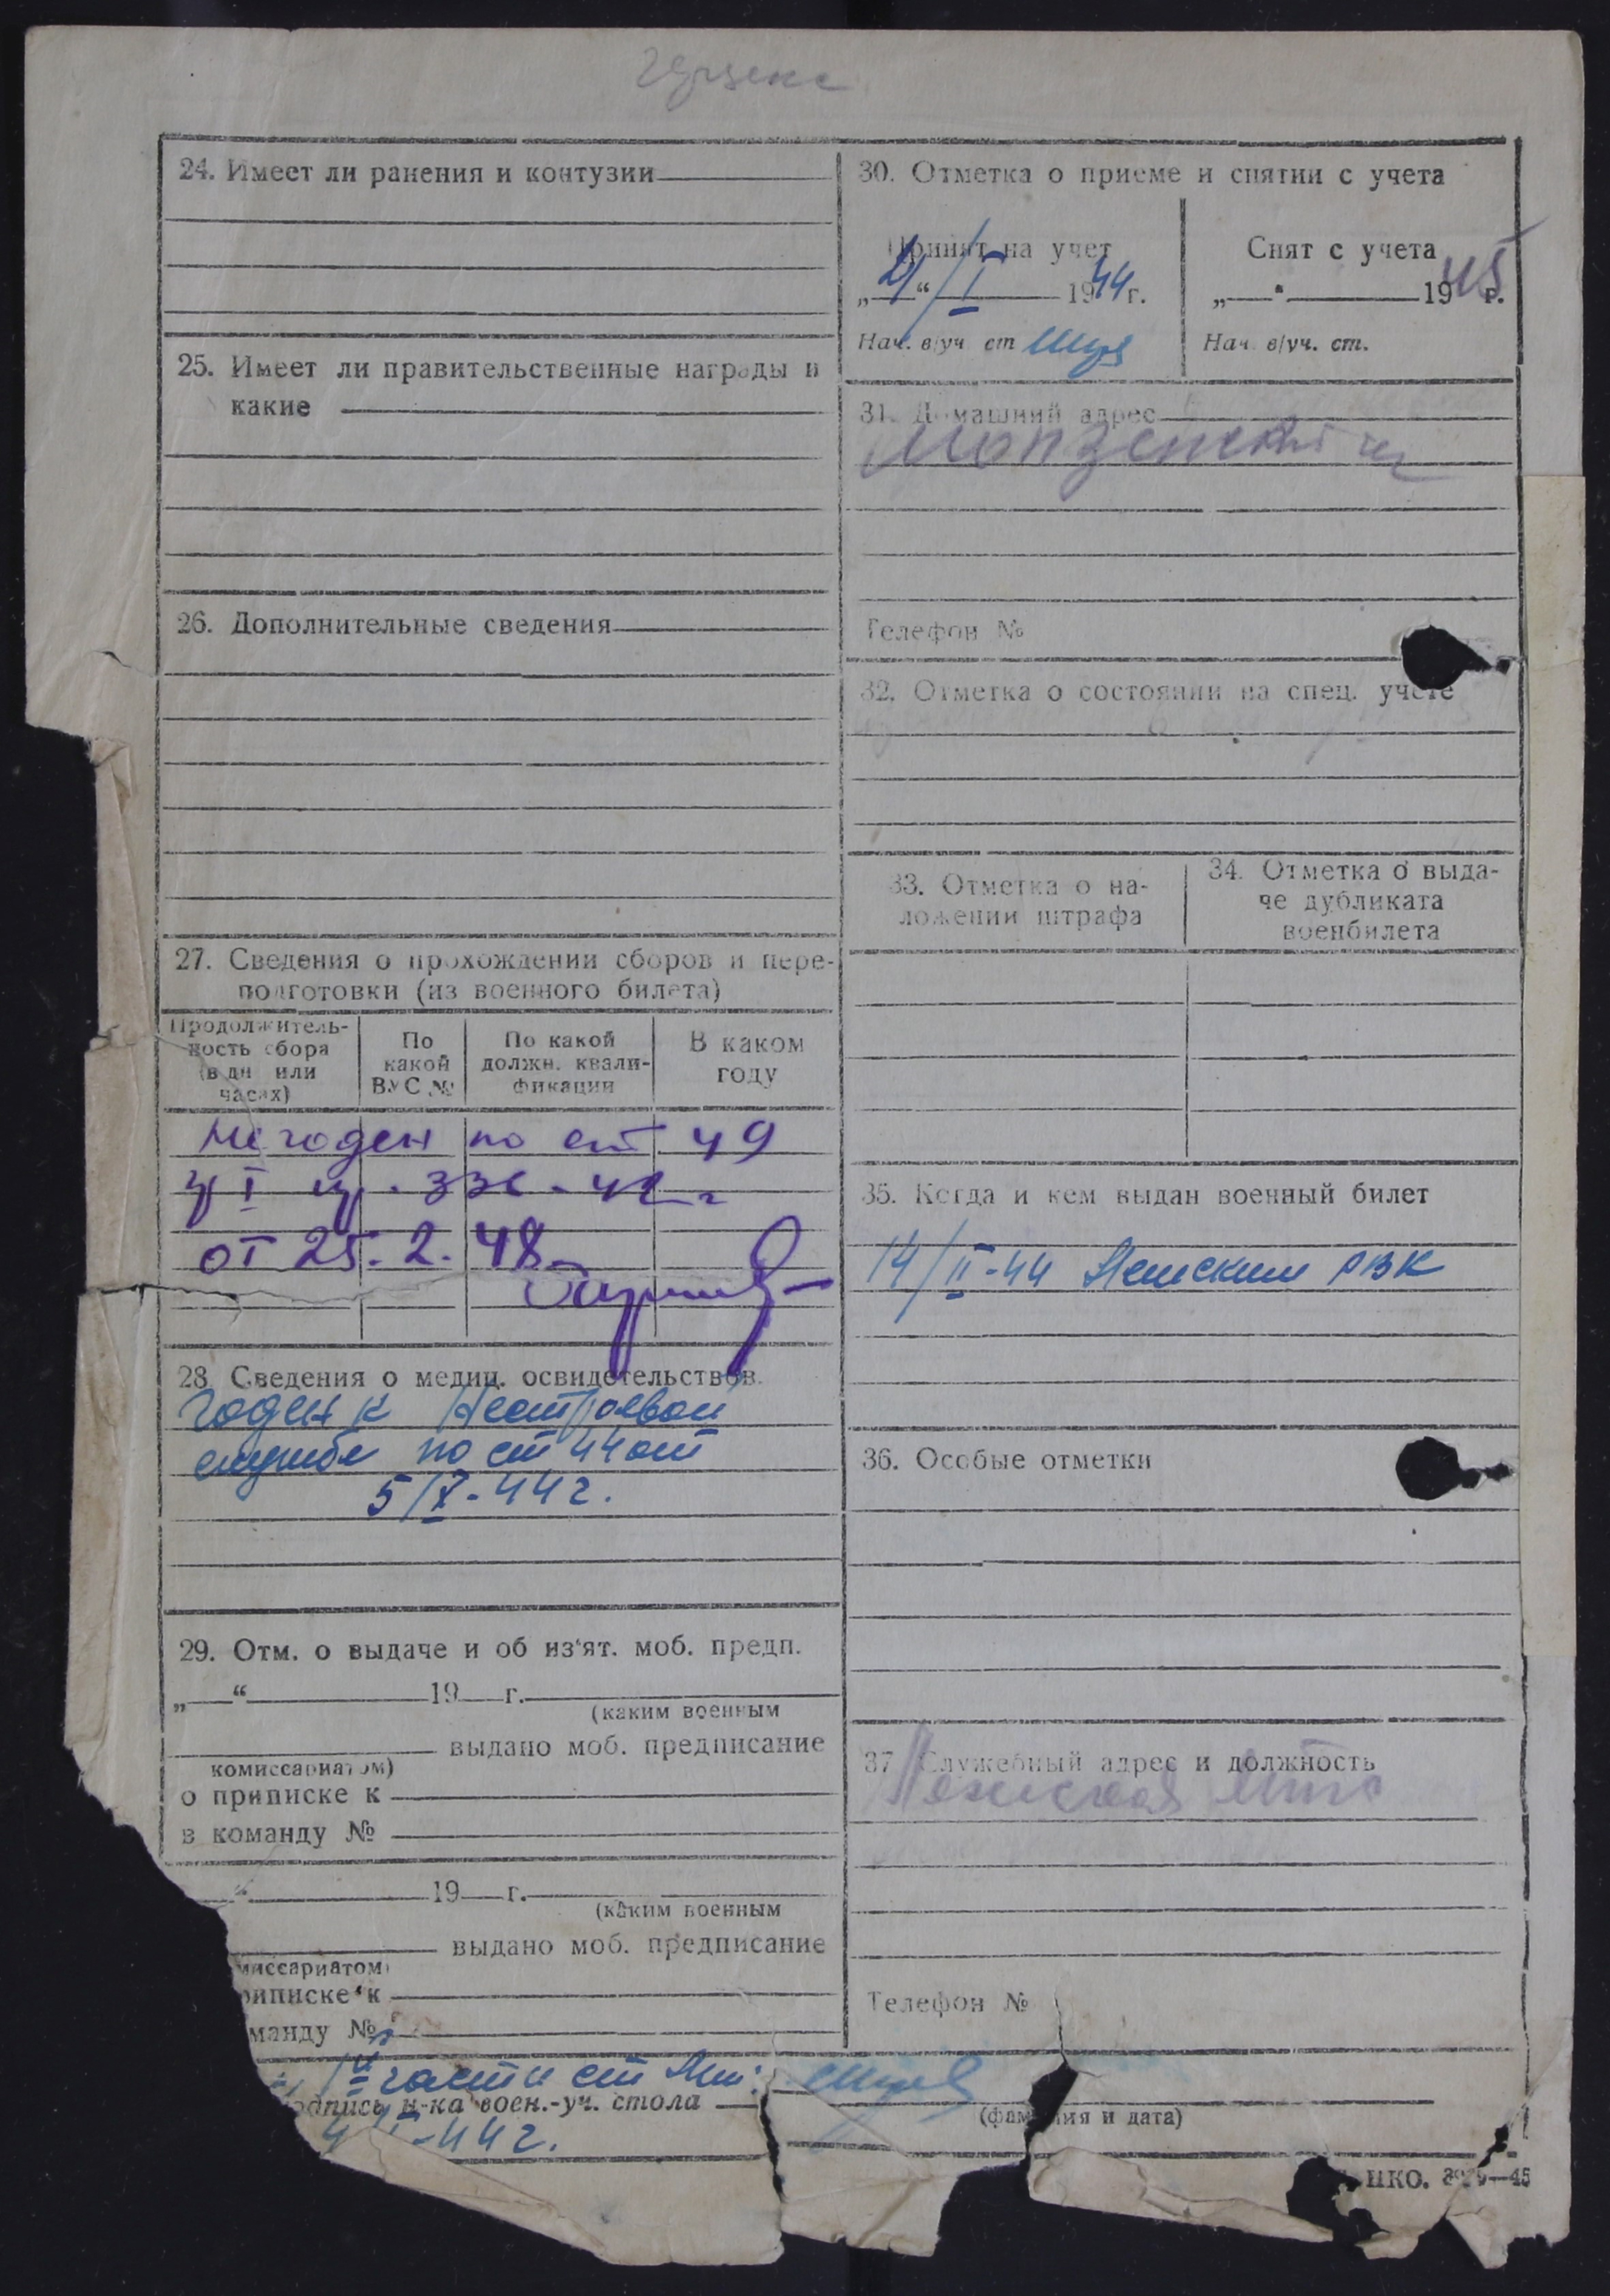 24. Имеет ли ранения и контузии
25. Имеет ли правительственные награды и
какие
26. Дополнительные сведения
27. Сведения о прохождении сборов и пере-
подготовки (из военного билета)
Продолжитель-
ность сбора
(в дн или
часах)
По
какой
ВУС №
По какой
должн. квали-
фикации
В каком
году
Не годен по ст 49
гр I пр. 336 - 42 г
от 25.2.48
28. Сведения о медиц. освидетельствов.
Годен к Нестроевой
службе по ст 44 от
5/X-44 г.
29. Отм. о выдаче и об из‘ят. моб. предп.
„ “ 19 г.
(каким военным
выдано моб. предписание
комиссариатом)
о приписке к
в команду №
“ 19 г.
(каким военным
выдано моб. предписание
миссариатом)
риписке к
манду №
30. Отметка о приеме и снятии с учета
Принят на учет
„ “ /I 1944 г.
Нач. в/уч ст
Снят с учета
„ “ 1945 г.
Нач в/уч. ст.
31. Домашний адрес
Телефон №
32. Отметка о состоянии на спец. учете
33. Отметка о на-
ложении штрафа
34. Отметка о выда-
че дубликата
военбилета
35. Когда и кем выдан военный билет
14/II-44 РВК
36. Особые отметки
37 Служебный адрес и должность
Телефон №
части ст
одпись н-ка воен.-уч. стола
(фамилия и дата)
-44 г.
НКО.